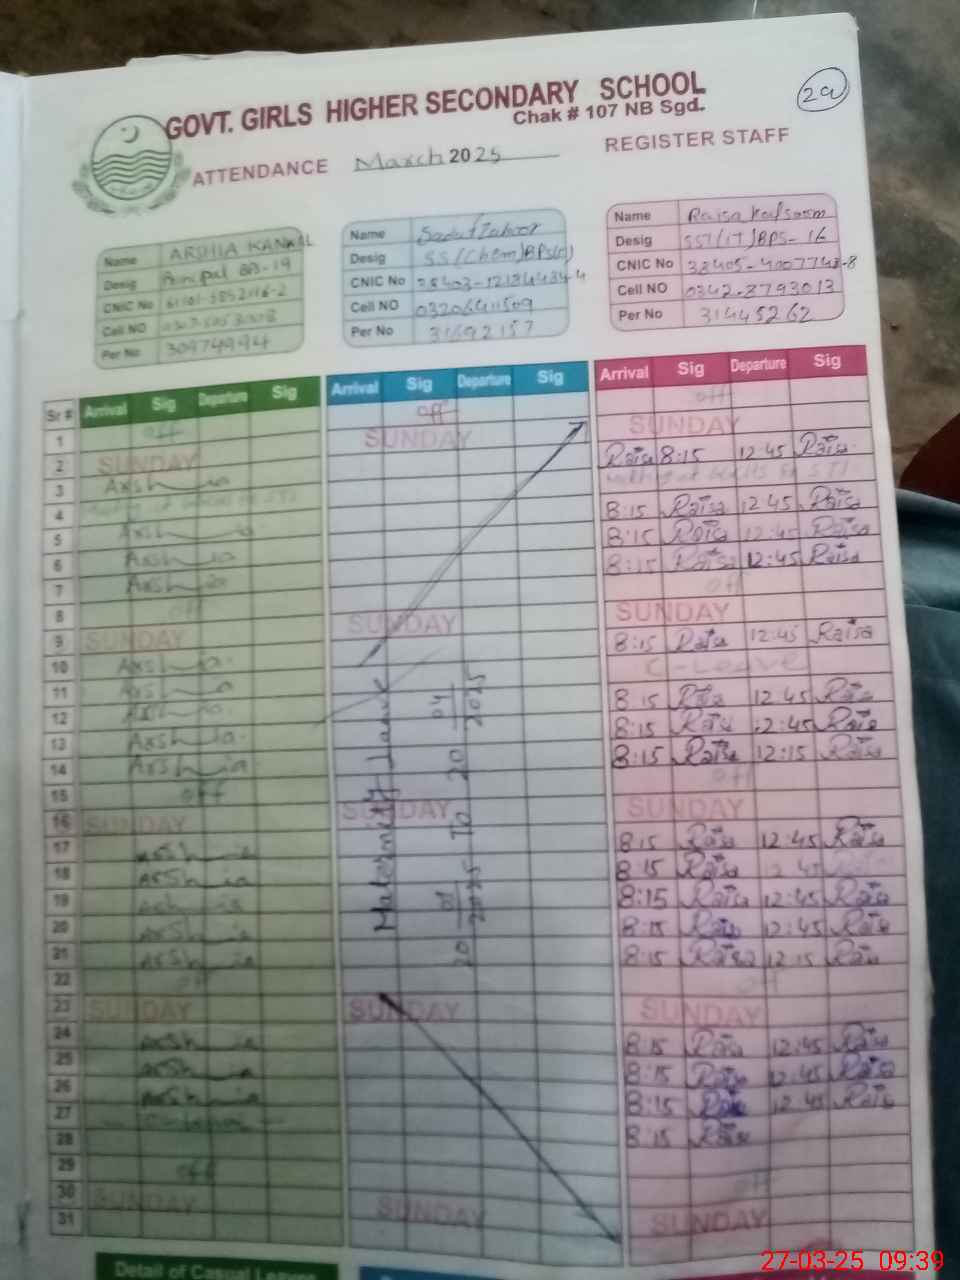 29
GOVT. GIRLS HIGHER SECONDARY SCHOOL
Chak # 107 NB Sgd.
ATTENDANCE March 2025 REGISTER STAFF
Name ARSHIA KANWAL
Desig Principal BS-19
CNIC No
Cell NO
Per No 30974994
Name
Desig SS (Chem)
CNIC No
Cell NO 03206411509
Per No 31692157
Name Raisa Kalsoom
Desig SST (IT) BPS-16
CNIC No 38405-4007743-8
Cell NO 0342-8793013
Per No 31445262
Sr # Arrival Sig Departure Sig Arrival Sig Departure Sig Arrival Sig Departure Sig
1 off off off
2 SUNDAY SUNDAY SUNDAY
3 Arshia Raisa 8:15 12:45 Raisa
4
5 Arshia 8:15 Raisa 12:45 Raisa
6 Arshia 8:15 Raisa 12:45 Raisa
7 Arshia 8:15 Raisa 12:45 Raisa
8 off off
9 SUNDAY SUNDAY SUNDAY
10 Arshia 8:15 Raisa 12:45 Raisa
11 Arshia C-Leave
12 Arshia 8:15 Raisa 12:45 Raisa
13 Arshia 8:15 Raisa 12:45 Raisa
14 Arshia 8:15 Raisa 12:15 Raisa
15 off off
16 SUNDAY SUNDAY SUNDAY
17 Arshia 8:15 Raisa 12:45 Raisa
18 Arshia 8:15 Raisa 12:45
19 Arshia 8:15 Raisa 12:45 Raisa
20 Arshia 8:15 Raisa 12:45 Raisa
21 Arshia 8:15 Raisa 12:15 Raisa
22 off off
23 SUNDAY SUNDAY SUNDAY
24 Arshia 8:15 Raisa 12:45 Raisa
25 Arshia 8:15 Raisa 12:45 Raisa
26 Arshia 8:15 Raisa 12:45 Raisa
27 8:15 Raisa
28
29 off off
30 SUNDAY SUNDAY SUNDAY
31
Maternity Leave
2025 To 20 04 2025
Detail of Casual Leaves
27-03-25 09:39